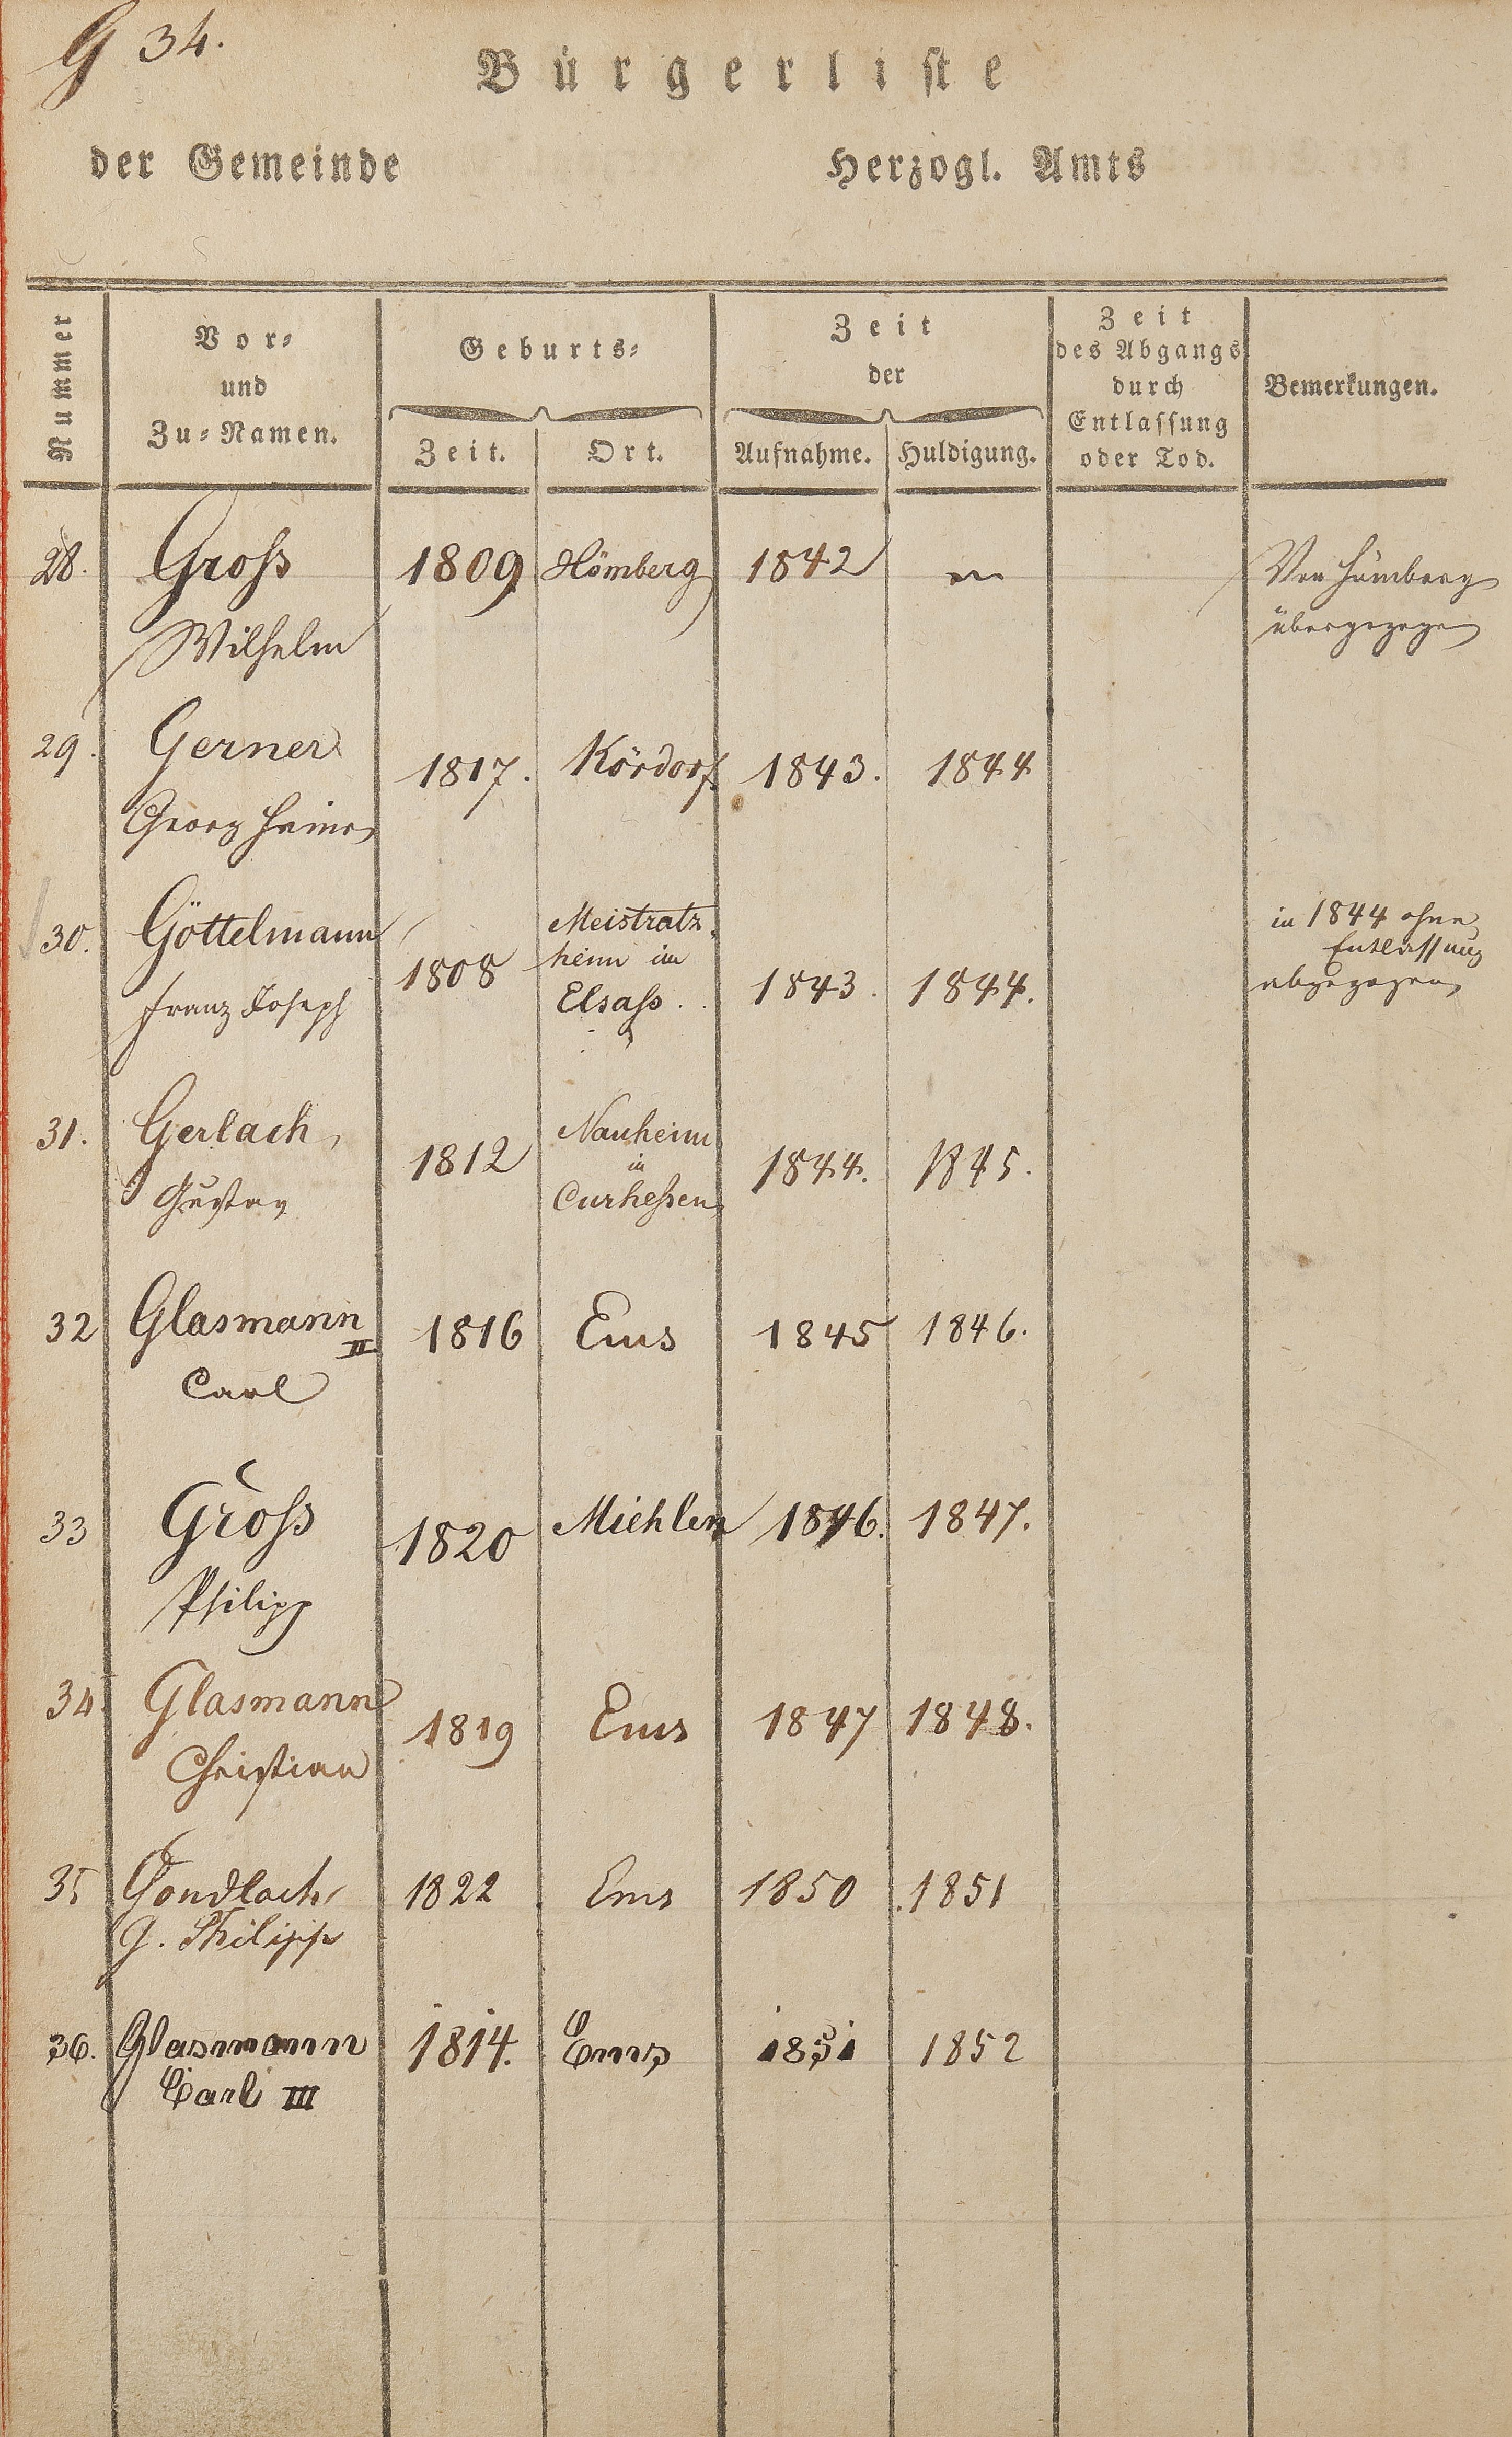 G 34.
Bürgerliste
der Gemeinde Herzogl. Amts
Nummer
Vor-
und
Zu-Namen.
Geburts-
Zeit. Ort.
Zeit
der
Aufnahme. Huldigung.
Zeit
des Abgangs
durch
Entlassung
oder Tod.
Bemerkungen.
28. Groß 1809 Hömberg 1842 Von Hömberg
Wilhelm übergezogen
29. Gerner 1817. Kördorf 1843. 1844
Georg Heinr.
30. Göttelmann 1808 Meistratz- 1843. 1844. in 1844 ohne
Franz Joseph heim im Entlassung
Elsaß. abgezogen
31. Gerlach, 1812 Nauheim 1844. 1845.
Gustav in
Curheßen
32 Glasmann II 1816 Ems 1845 1846.
Carl
33 Groß 1820 Miehlen 1846. 1847.
Philipp
34 Glasmann 1819 Ems 1847 1848.
Christian
35 Gondlach, 1822 Ems 1850 1851
G. Philipp
36. Glasmann 1814. Ems 1851 1852
Carl III